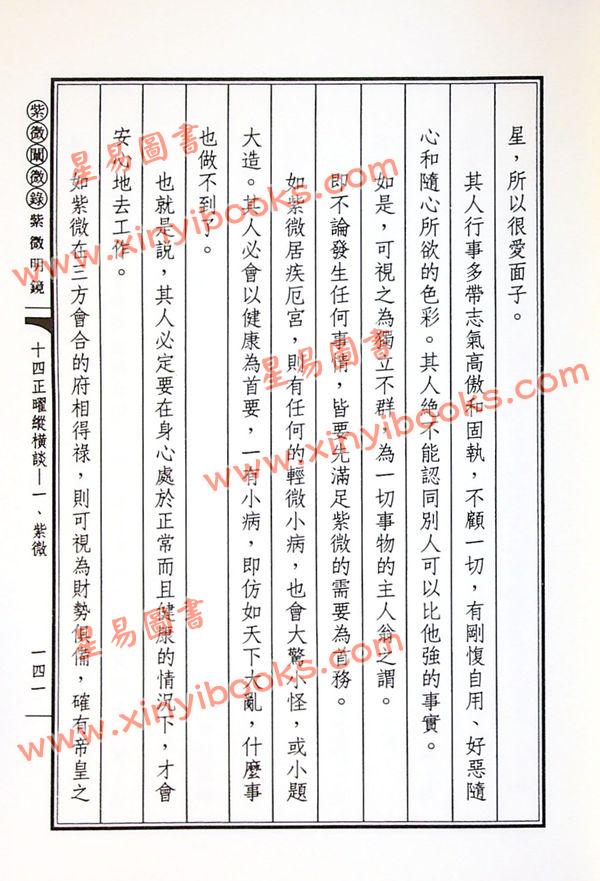 星，所以很愛面子。
其人行事多帶志氣高傲和固執，不顧一切，有剛愎自用、好惡隨
心和隨心所欲的色彩。其人絶不能認同別人可以比他強的事實。
如是，可視之為獨立不群，為一切事物的主人翁之謂。
即不論發生任何事情，皆要先滿足紫微的需要為首務。
如紫微居疾厄宮，則有任何的輕微小病，也會大驚小怪，或小題
大造。其人必會以健康為首要，一有小病，即仿如天下大亂，什麼事
也做不到了。
也就是說，其人必定要在身心處於正常而且健康的情況下，才會
安心地去工作。
如紫微在三方會合的府相得祿，則可視為財勢俱備，確有帝皇之
紫微闡微錄 紫微明鏡
十四正曜縱橫談—一、紫微
一四一
星易圖書
www.xinyibooks.com
星易圖書
www.xinyibooks.com
星易圖書
www.xinyibooks.com